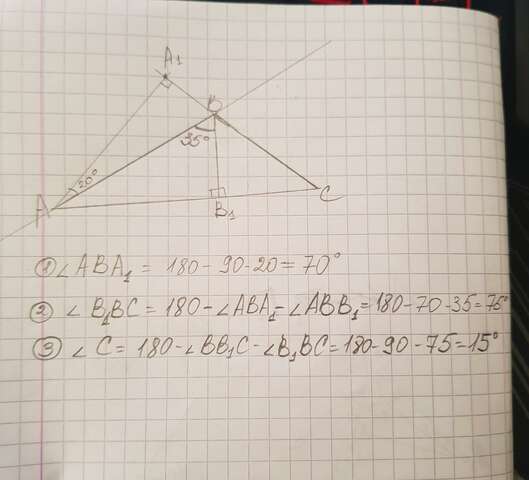 A₁
B
35°
20°
A
B₁
C
① ∠ABA₁ = 180 - 90 - 20 = 70°
② ∠B₁BC = 180 - ∠ABA₁ - ∠ABB₁ = 180 - 70 - 35 = 75°
③ ∠C = 180 - ∠BB₁C - ∠B₁BC = 180 - 90 - 75 = 15°